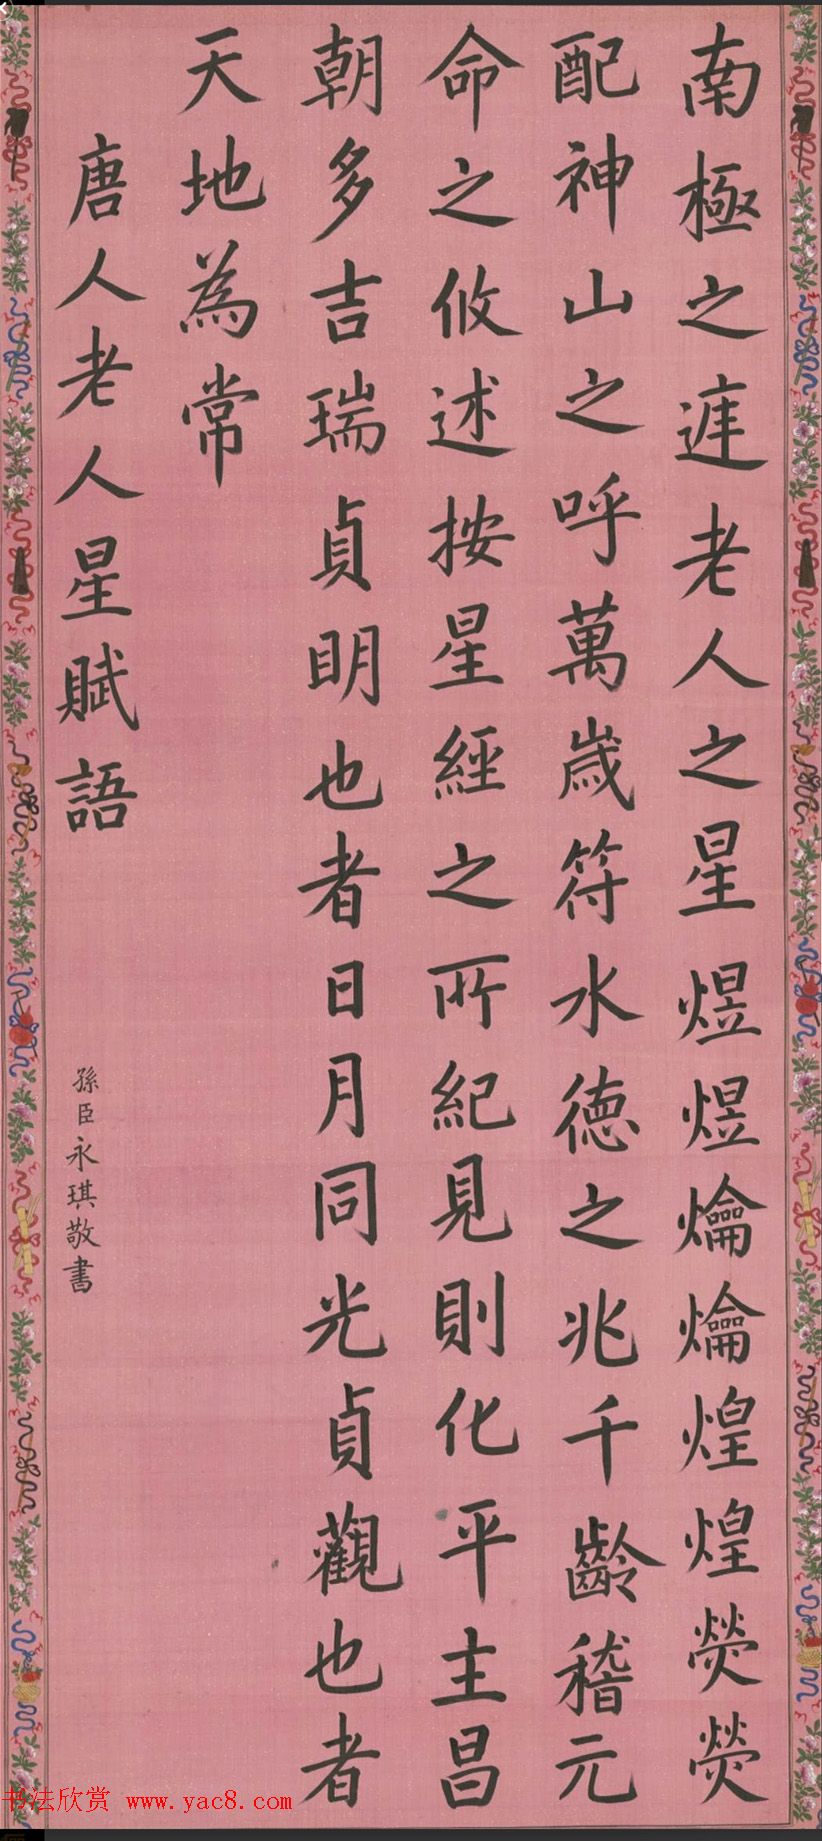 南極之㢌老人之星煜煜爚爚煌煌熒熒
配神山之呼萬歲符水德之兆千齡稽元
命之攸述按星經之所紀見則化平主昌
朝多吉瑞貞明也者日月同光貞觀也者
天地為常
唐人老人星賦語
孫臣永琪敬書
书法欣赏 www.yac8.com